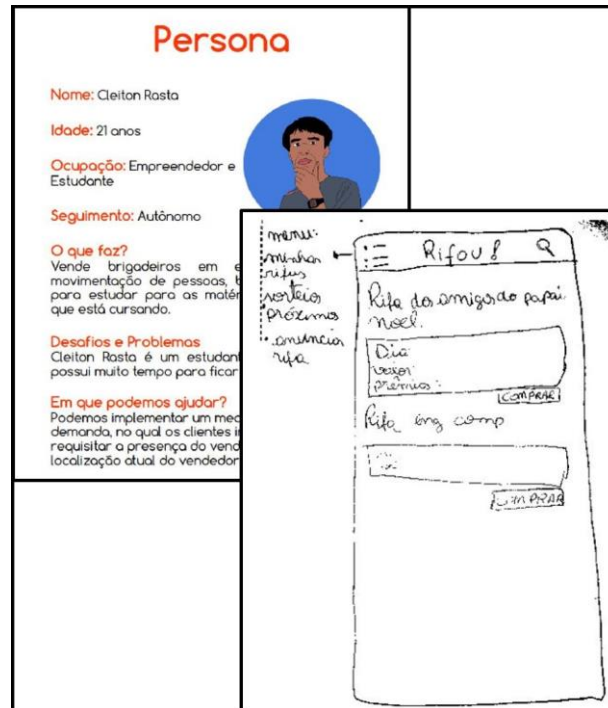 Persona
Nome: Cleiton Rasta
Idade: 21 anos
Ocupação: Empreendedor e
Estudante
Seguimento: Autônomo
O que faz?
Vende brigadeiros em
movimentação de pessoas,
para estudar para as
que está cursando.
Desafios e Problemas
Cleiton Rasta é um
possui muito tempo para ficar
Em que podemos ajudar?
Podemos implementar um
demanda, no qual os clientes
requisitar a presença do
localização atual do vendedor
menu:
minhas
rifas
sorteios
próximos
anúncios
rifa
Rifou!
Rifa dos amigos do papai
noel.
Dia:
valor:
prêmios:
COMPRAR
Rifa eng comp
COMPRAR